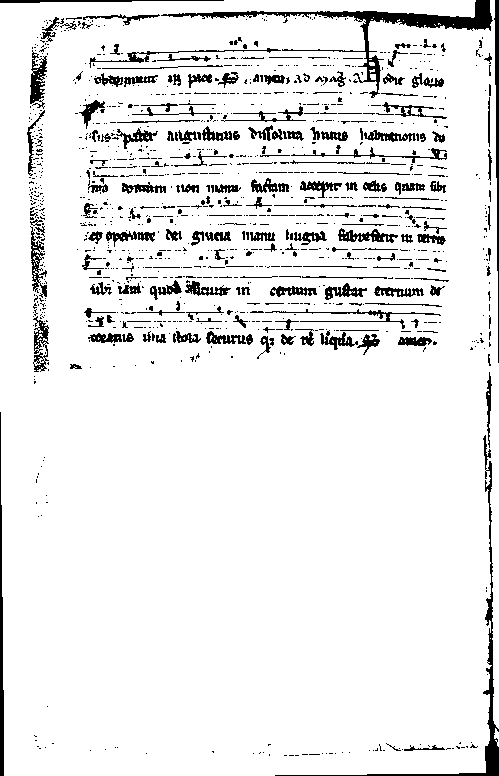 obdormiuit in pace. amen. ad magͫ. Hodie glorio
sus pater augustinus dissoluta huius habitationis do
mo domum non manu factam accepit in celis quam sibi
cooperante dei gracia manu lingua fabrefecit in terris
ubi iam quod sitiuit in eternum gustat eternum de
coratus una stola securus q; de reliqua. amen.